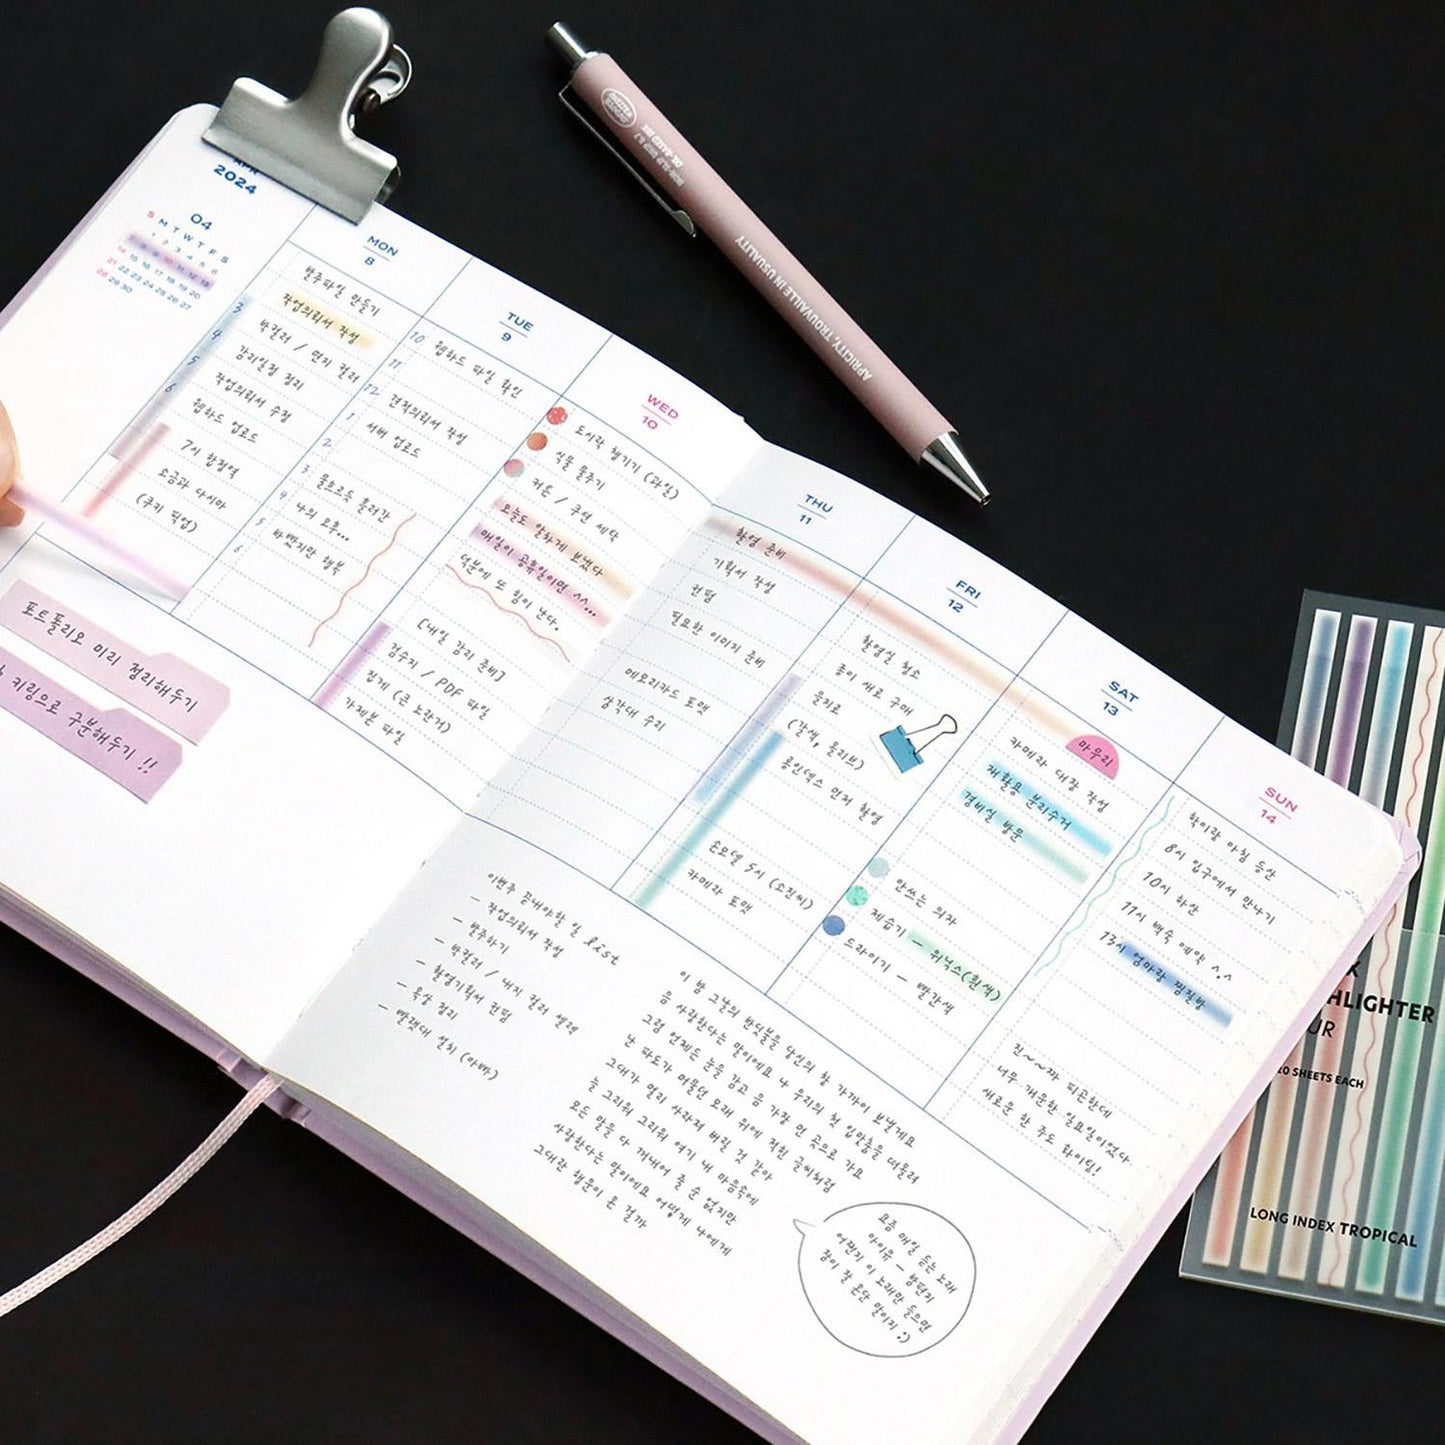 APR
2024
04
S M T W T F S
1 2 3 4 5 6
7 8 9 10 11 12 13
14 15 16 17 18 19 20
21 22 23 24 25 26 27
28 29 30
MON
8
발주파일 만들기
작업의뢰서 작성
박컬러 / 면지 컬러
감리일정 정리
작업의뢰서 수정
웹하드 업로드
7시 합정역
소금과 다시마
(쿠키 픽업)
3
4
5
6
TUE
9
10 웹하드 파일 확인
11
12 견적의뢰서 작성
1 서버 업로드
2
3 물흐르듯 흘러간
4 나의 오후...
5 바빴지만 행복
6
WED
10
도시락 챙기기 (과일)
식물 물주기
커튼 / 쿠션 세탁
오늘도 알차게 보냈다
매일이 공휴일이면 ^^...
덕분에 또 힘이 난다.
[내일 감리 준비]
검수지 / PDF 파일
집게 (큰 노란거)
가제본 파일
포트폴리오 미리 정리해두기
키링으로 구분해두기 !!
THU
11
촬영 준비
기획서 작성
컨펌
필요한 이미지 준비
메모리카드 포맷
삼각대 수리
FRI
12
촬영실 청소
종이 새로 구매
을지로
(갈색, 올리브)
롱인덱스 먼저 촬영
손모델 5시 (소진씨)
카메라 포맷
SAT
13
마무리
카메라 대장 작성
재활용 분리수거
경비실 방문
안쓰는 의자
제습기 - 위닉스(흰색)
드라이기 - 빨간색
SUN
14
학이랑 아침 등산
8시 입구에서 만나기
10시 하산
11시 백숙 예약 ^.^
13시 엄마랑 찜질방
진~~짜 피곤한데
너무 개운한 일요일이었다
새로운 한 주도 화이팅!
이번주 끝내야할 일 list
- 작업의뢰서 작성
- 발주하기
- 박컬러 / 내지 컬러 셀렉
- 촬영기획서 컨펌
- 옥상 정리
- 빨랫대 설치 (아빠)
이 밤 그날의 반딧불을 당신의 창 가까이 보낼게요
음 사랑한다는 말이에요 나 우리의 첫 입맞춤을 떠올려
그럼 언제든 눈을 감고 음 가장 먼 곳으로 가요
난 파도가 머물던 모래 위에 적힌 글씨처럼
그대가 멀리 사라져 버릴 것 같아
늘 그리워 그리워 여기 내 마음속에
모든 말을 다 꺼내어 줄 순 없지만
사랑한다는 말이에요 어떻게 나에게
그대란 행운이 온 걸까
요즘 매일 듣는 노래
아이유 - 밤편지
어쩐지 이 노래만 들으면
잠이 잘 온단 말이지 :)
NON-SLIP GRIP 0.7
OIL-BASED INK
APRICITY, TROUVAILLE IN USUALITY
HLIGHTER
20 SHEETS EACH
LONG INDEX TROPICAL